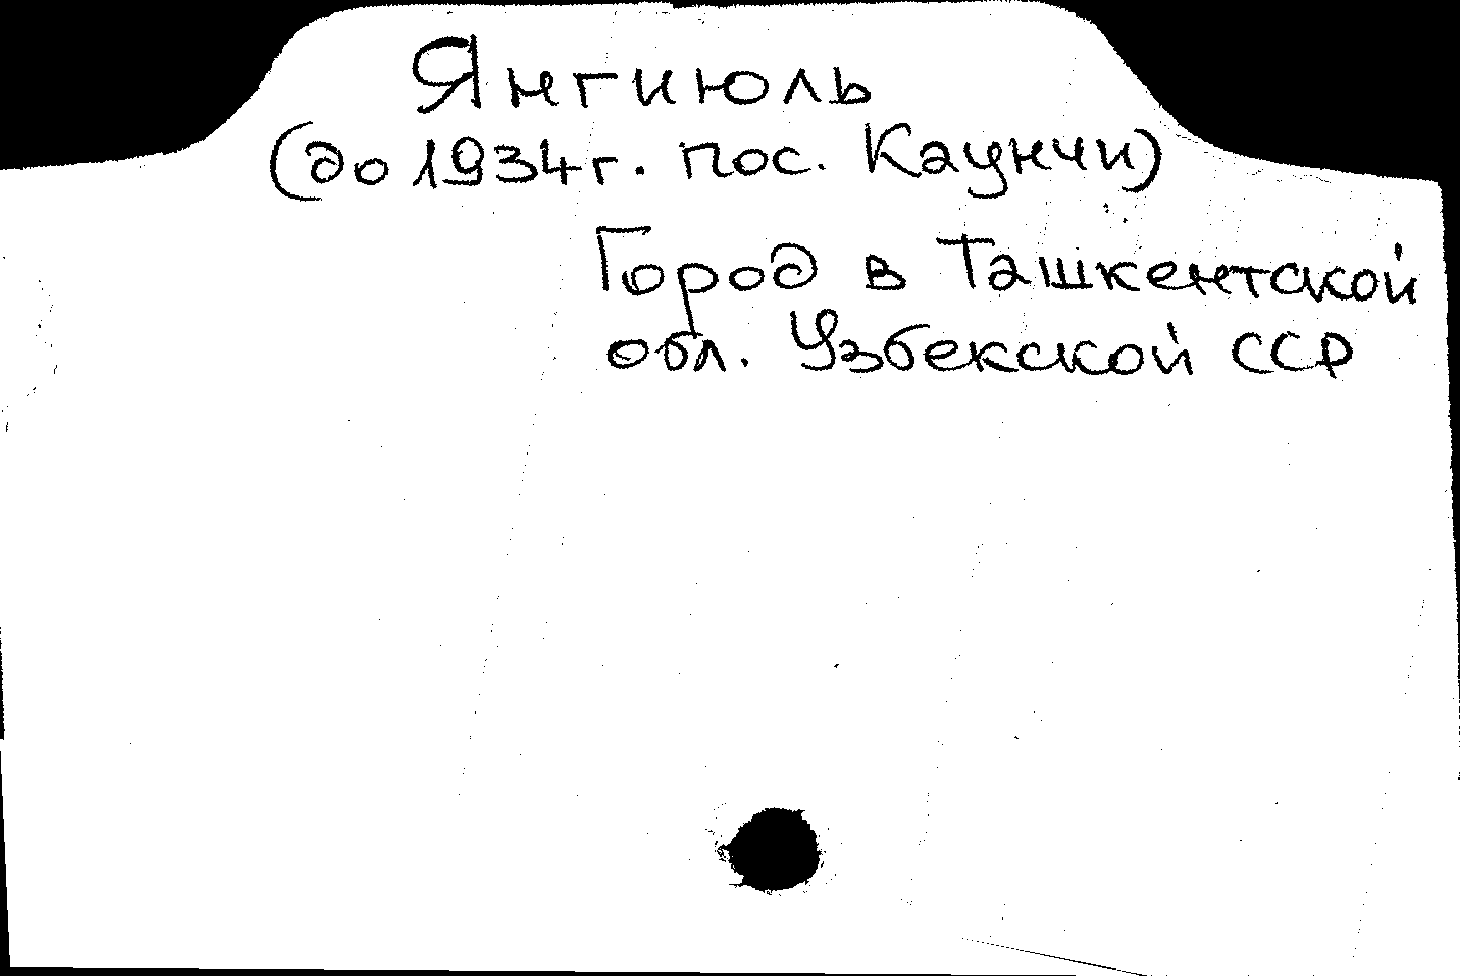 Янгиюль
(до 1934г. пос. Каунчи)
Город в Ташкентской
обл. Узбекской ССР